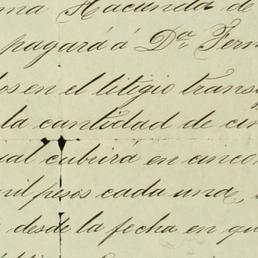 Hacienda de
pagará á Dª Fern
os en el litigio trans
la cantidad de cin
ual cubrira en cinco
mil pesos cada una,
desde la fecha en qu